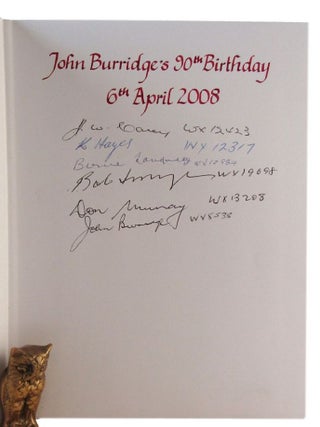 John Burridge's 90th Birthday
6th April 2008
J. W. Carey WX12423
K Hayes WX 12317
Bernie
Bob WX19098
Don Murray WX13208
John Burridge WX8538